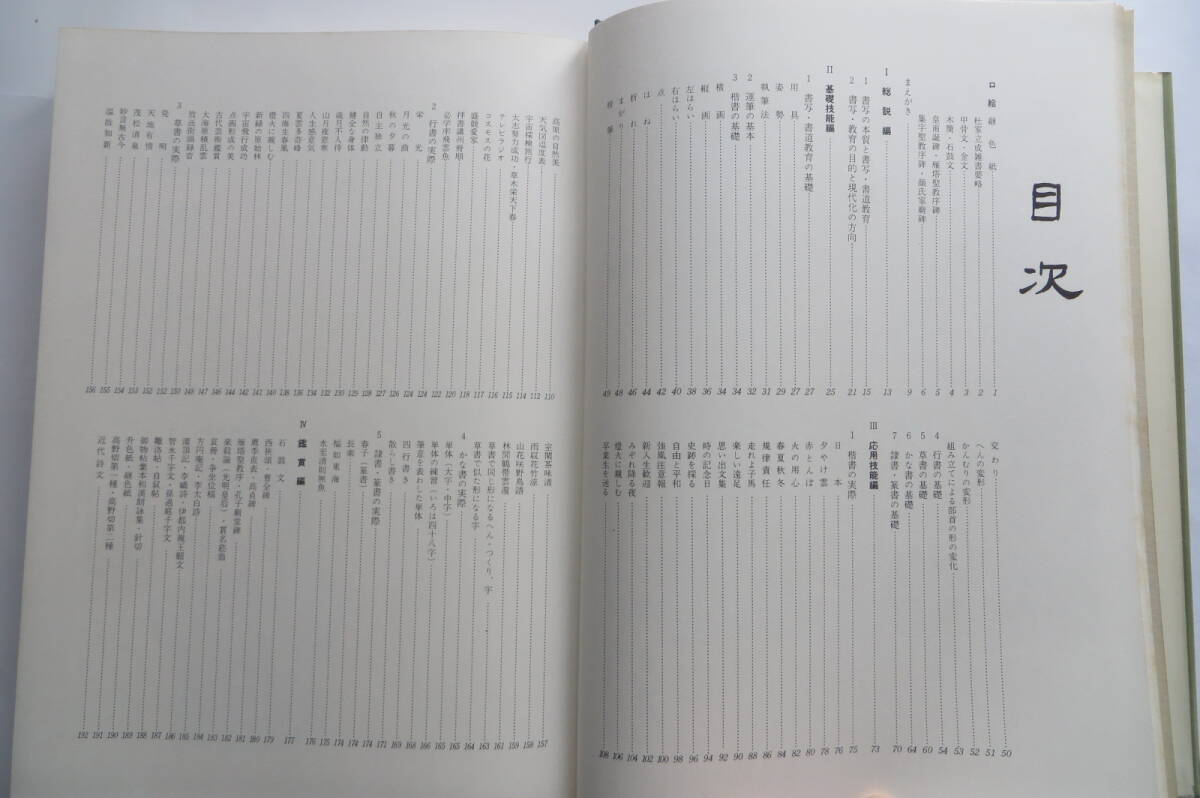 目次
口絵
継色紙 1
杜家立成雑書要略 2
甲骨文・金文 3
木簡・石鼓文 4
皇甫誕碑・雁塔聖教序碑 5
集字聖教序碑・顔氏家廟碑 6
まえがき 9
Ⅰ 総説編 13
1 書写の本質と書写・書道教育 15
2 書写・教育の目的と現代化の方向 21
Ⅱ 基礎技能編 25
1 書写・書道教育の基礎 27
用具 27
姿勢 29
執筆法 31
2 運筆の基本 32
3 楷書の基礎 34
横画 34
縦画 36
左はらい 38
右はらい 40
点 42
はね 44
折れ 46
まがり 48
49
交わり 50
へんの変形 51
かんむりの変形 52
組み立てによる部首の形の変化 53
4 行書の基礎 54
5 草書の基礎 60
6 かな書の基礎 64
7 隷書・篆書の基礎 70
Ⅲ 応用技能編 73
1 楷書の実際 75
日本 76
夕やけ雲 78
赤とんぼ 80
火の用心 82
春夏秋冬 84
規律責任 86
走れよ子馬 88
楽しい遠足 90
思い出文集 92
時の記念日 94
史跡を探る 96
自由と平和 98
強風注意報 100
新入生歓迎 102
みぞれ降る夜 104
燈火に親しむ 106
卒業生を送る 108
高原の自然美 110
天気図温度表 112
宇宙探検旅行 114
大志努力成功・草木栄天下春 115
テレビラジオ 116
コスモスの花 117
盛競愛家 118
拝書講州脊順 119
必必率飛雲魚 120
2 行書の実際 122
栄光 122
月光の曲 124
秋の夕暮 126
自主独立 127
自然の躍動 128
健全な身体 129
歳月不人待 130
山月夜窓寒 132
人生感意気 134
夏雲多奇峰 136
四海生春風 138
燈火に親しむ 139
新緑の原始林 140
宇宙飛行成功 141
点画形成の美 142
古代芸術鑑賞 144
大海原積乱雲 146
放送街頭録音 148
3 草書の実際 150
発明 152
天地有情 152
茂松清泉 153
妙言無古今 154
155
温故知新 156
室閑茶味清 157
雨収花竹涼 158
山花咲野鳥語 159
林間観帯雲還 161
草書で同じ形になるへん・つくり、字 163
草書で似た形になる字 164
4 かな書の実際 165
単体（大字・中字） 165
単体の練習（いろは四十八字） 165
筆意を表わした単体 167
四行書き 168
散らし書き 169
5 隷書・篆書の実際 171
春子（篆書） 173
長楽 174
福如東海 174
水至清則無魚 175
Ⅳ 鑑賞編 177
石鼓文 179
西狭頌・曹全碑 180
薦季直表・高貞碑 181
雁塔聖教序・孔子廟堂碑 181
楽毅論（光明皇后）・賈名慈曲 182
哀冊・争坐位稿 183
方円庵記・李太白詩 184
潅頂記・李嶠詩・伊都内親王願文 185
智永千字文・孫過庭千字文 186
離洛帖・白氏帖 187
御物粘葉本和漢朗詠集・針切 188
升色紙・継色紙 189
高野切第一種・高野切第二種 190
近代詩文 192